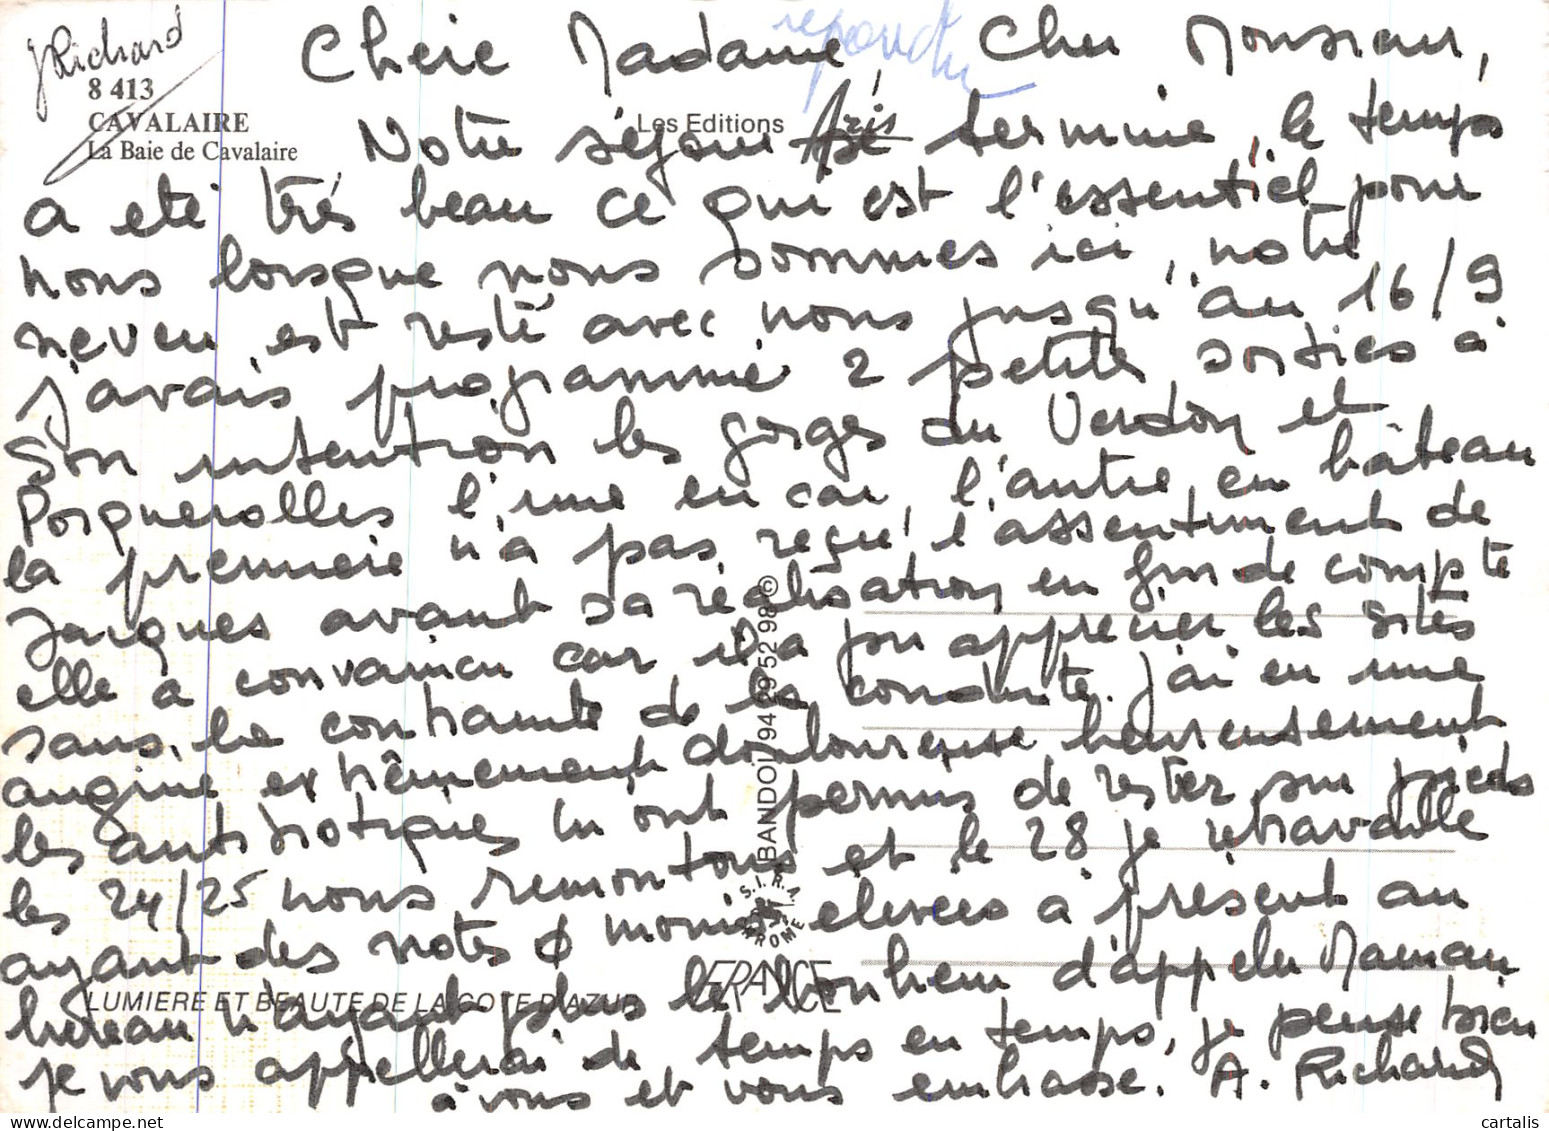 J Richard
8 413
CAVALAIRE
La Baie de Cavalaire
répondu
Les Editions Aris
Chère Madame, Cher Monsieur,
Notre séjour se termine, le temps
a été très beau ce qui est l'essentiel pour
nous lorsque nous sommes ici, notre
neveu est resté avec nous jusqu'au 16/9
j'avais programmé 2 petites sorties à
son intention les gorges du Verdon et
Porquerolles l'une en car, l'autre en bâteau
la première n'a pas reçu l'assentiment de
Jacques avant sa réalisation en fin de compte
elle a convaincu car il a pu apprécier les sites
sans la contrainte de la conduite. J'ai eu une
angine extrêmement douloureuse heureusement
les antibiotiques m'ont permis de rester sur pieds
les 24/25 nous remontons et le 28 je retravaille
ayant des notes moins élevées à présent au
bureau n'ayant plus le bonheur d'appeler Maman
je vous appellerai de temps en temps, je pense bien
à vous et vous embrasse. A. Richard
BANDOL 94 29 52 98 ©
S.I.R.A.
LUMIERE ET BEAUTE DE LA COTE D'AZUR
FRANCE
cartalis